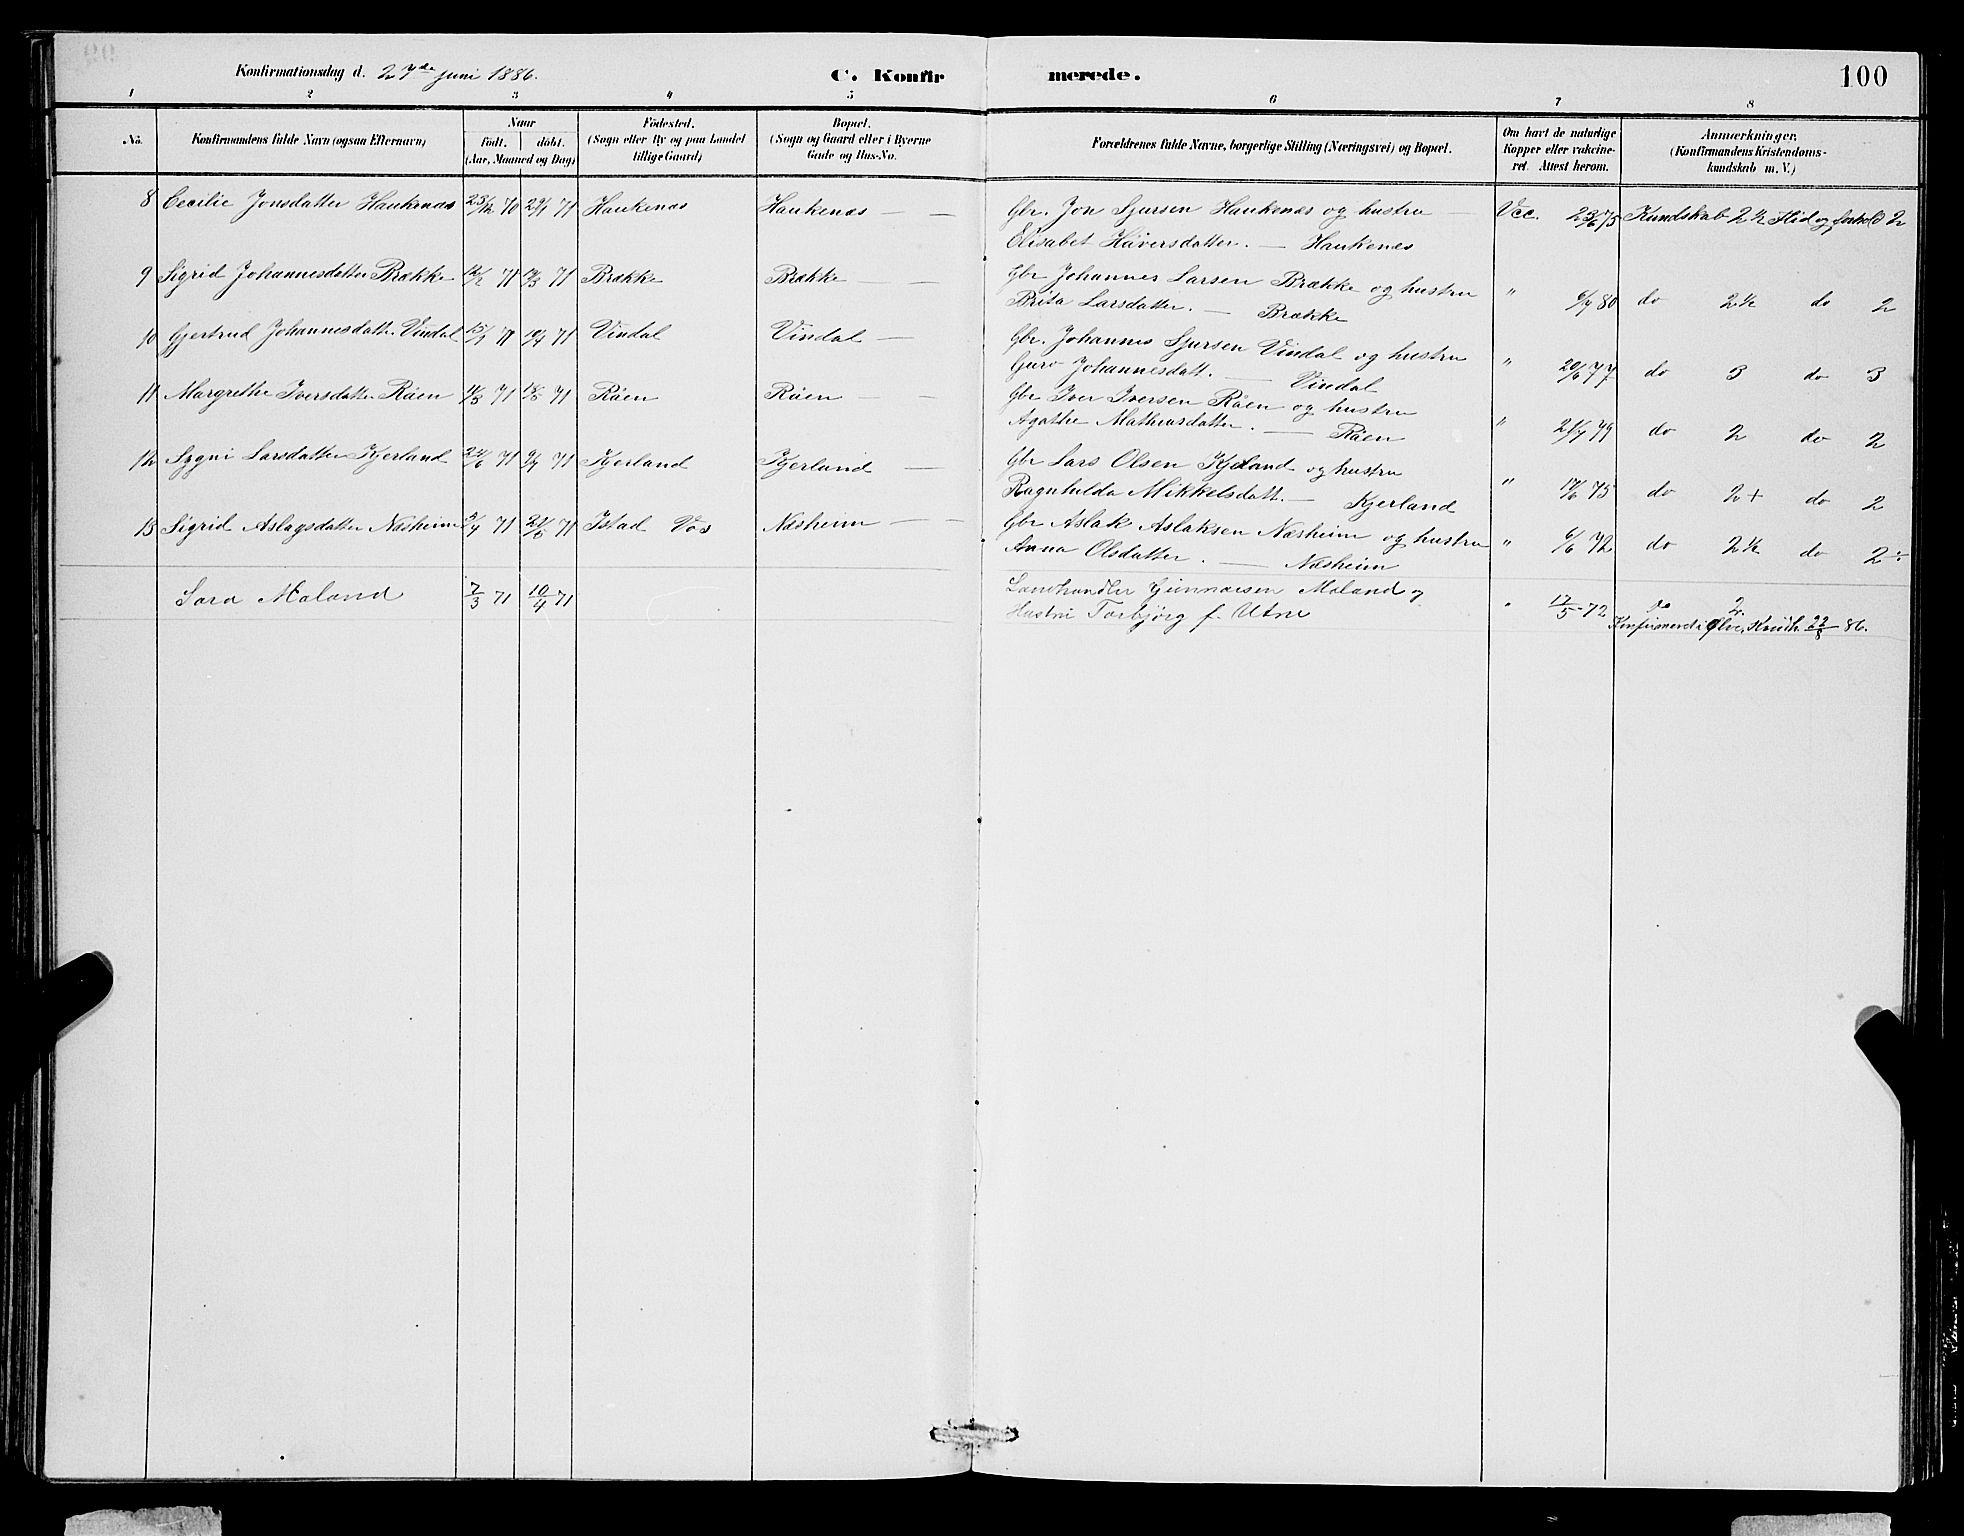 Konfirmationsdag d. 27de juni 1886. C. Konfirmerede. 100
1 2 3 4 5 6 7 8
No. Konfirmandens fulde Navn (ogsaa Efternavn) Naar födt. döbt. (Aar, Maaned og Dag) Födested. (Sogn eller By og paa Landet tillige Gaard) Bopæl. (Sogn og Gaard eller i Byerne Gade og Hus-No. Forældrenes fulde Navne, borgerlige Stilling (Næringsvei) og Bopæl. Om havt de naturlige Kopper eller vakcineret. Attest herom. Anmærkninger. (Konfirmandens Kristendomskundskab m. V.)
8 Cecilie Jonsdatter Haukenæs 25/12 70 29/1 71 Haukenæs Haukenæs — — Gbr. Jon Sjursen Haukenæs og hustru — Vcc. 75 Kundskab 2½ Flid og forhold 2
Elisabet Håversdatter. — Haukenæs
9 Sigrid Johannesdatter Brække 71 71 Brække Brække — — Gbr Johannes Larsen Brække og hustru
Brita Larsdatter. — Brække " 80 do 2½ do 2
10 Gjertrud Johannesdatt. Vindal 71 71 Vindal Vindal — Gbr. Johannes Sjursen Vindal og hustru
Guro Johannesdatt. — Vindal " 20/6 77 do 3 do 3
11 Margrethe Iversdatter Råen 71 71 Råen Råen — — Gbr Iver Iversen Råen og hustru
Agathe Mathiasdatter. — Råen " 79 do 2 do 2
12 Sygni Larsdatter Kjerland 24/6 71 9/7 71 Kjerland Kjerland — Gbr Lars Olsen Kjeland og hustru
Ragnhilda Mikkelsdatt. — Kjerland " 75 do 2+ do 2
13 Sigrid Aslagsdatter Næsheim 3/4 71 21/5 71 Istad Vos Næsheim — — Gbr Aslak Aslaksen Næsheim og hustru
Anna Olsdatter. — Næsheim " 6/6 72 do 2½ do 2÷
Sara Maland 7/3 71 10/4 71 Landhandler Gunnarsen Maland og
Hustru Torbjörg f. Utne " 17/5 72 do 2.
Konfirmeret i Ølve, Kvindh. 22/8 86.